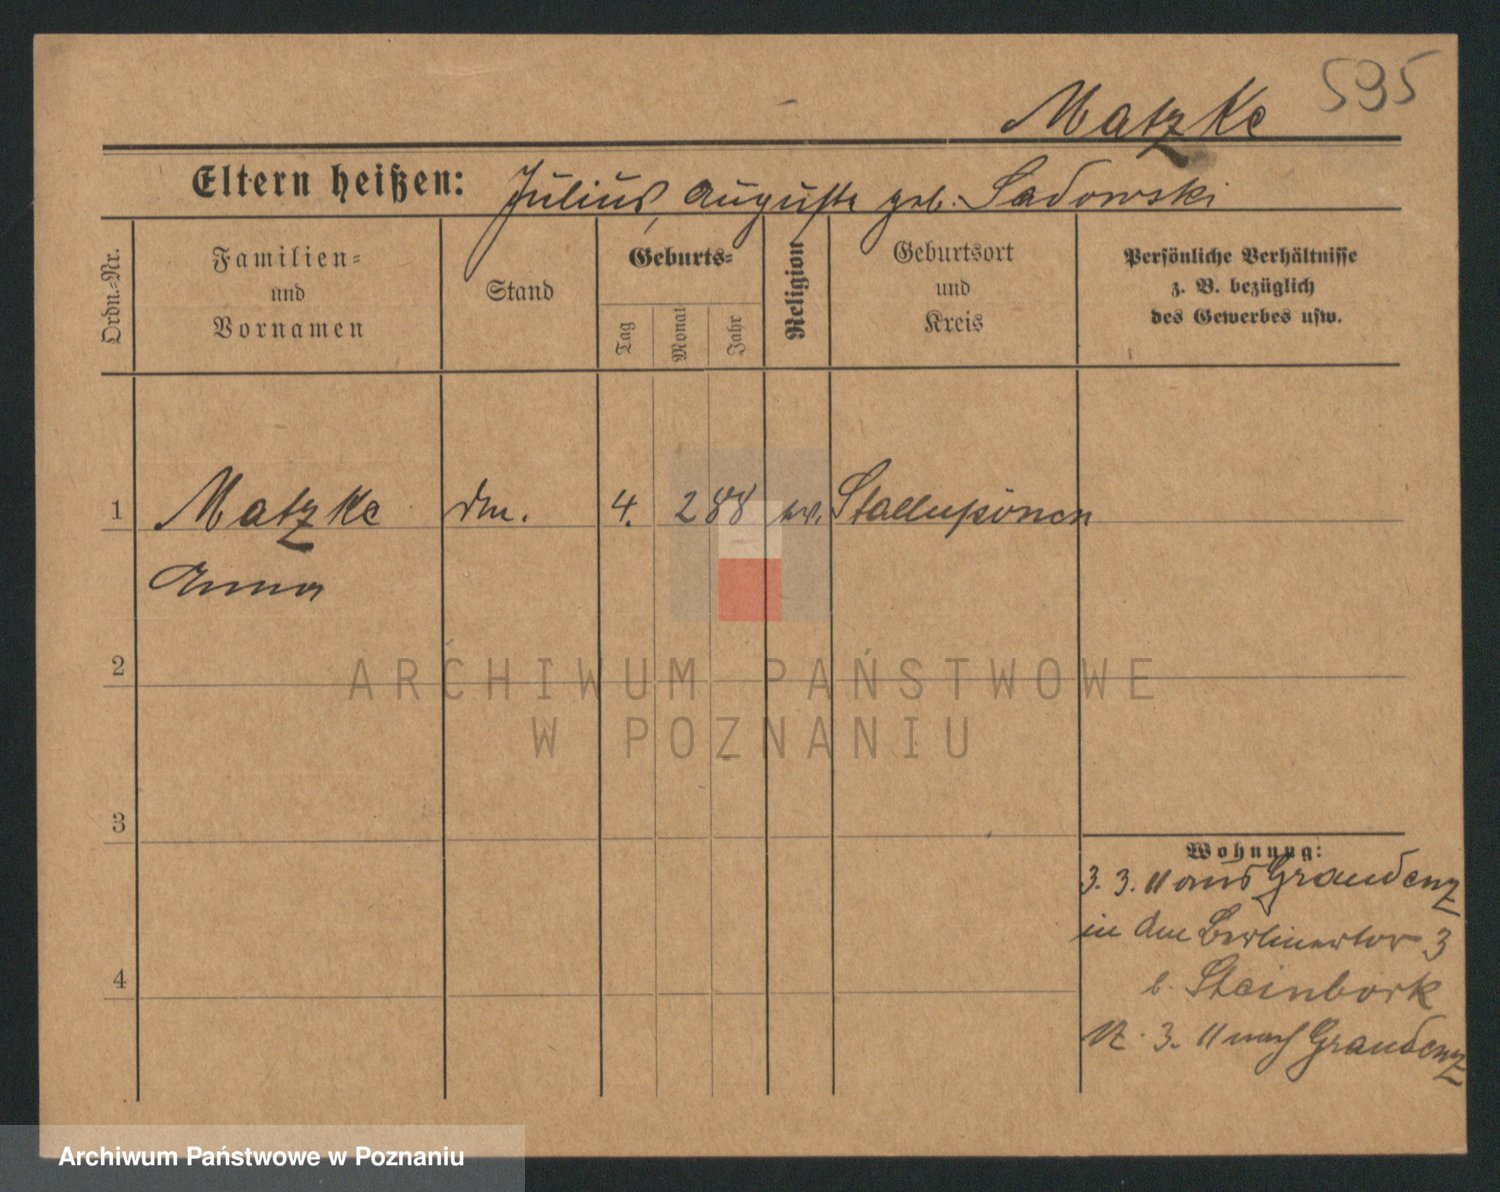 595
Matzke
Eltern heißen: Julius, Auguste geb. Sadowski
Ordn.-Nr.
Familien-
und
Vornamen
Stand
Geburts-
Tag
Monat
Jahr
Religion
Geburtsort
und
Kreis
Persönliche Verhältnisse
z. B. bezüglich
des Gewerbes usw.
1 Matzke 4. 2 88 ev. Stallupönen
Anna
2
ARCHIWUM PAŃSTWOWE
W POZNANIU
3
Wohnung:
3. 3. 11 aus Graudenz
in Berlinertor 3
b. Steinbork
3. 11 nach Graudenz
4
Archiwum Państwowe w Poznaniu